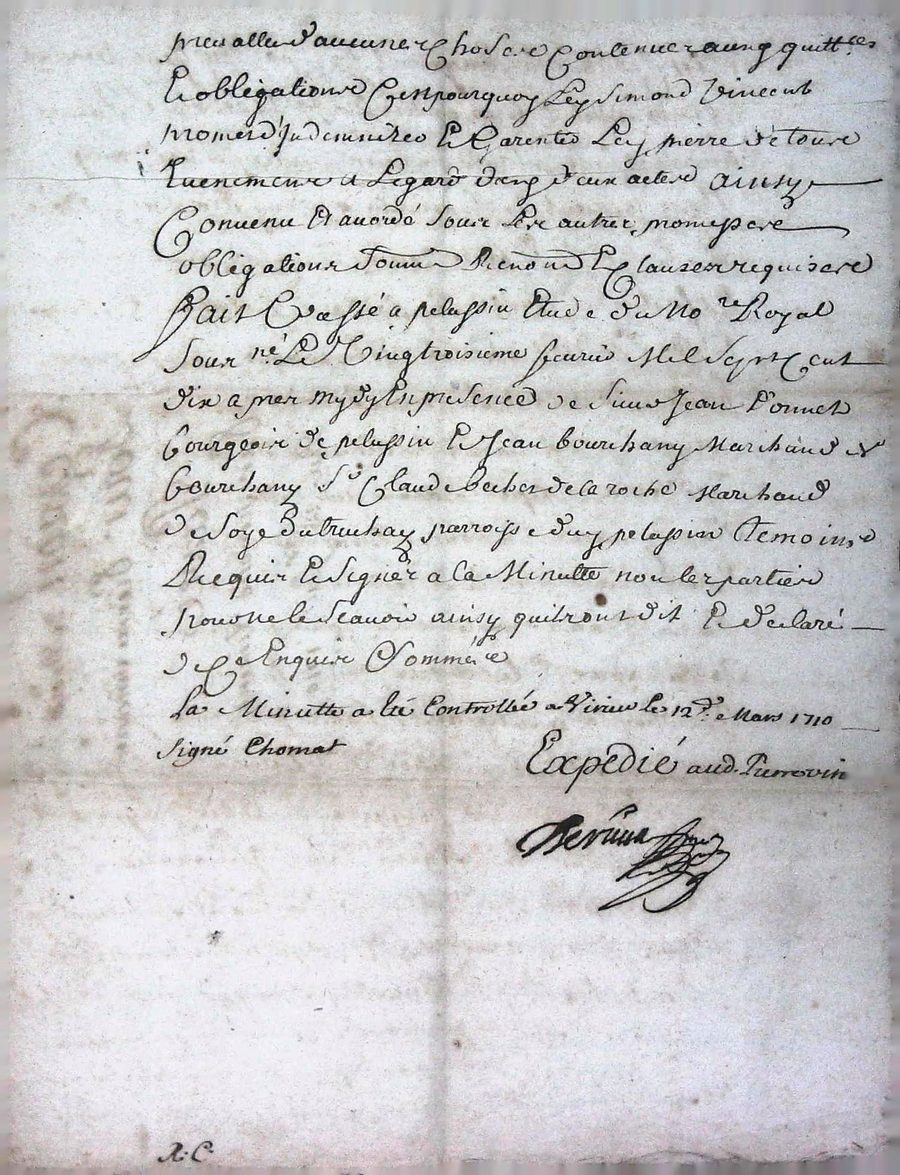 d'aucunes choses contenues auxd quitt.ces
Et obligations Cest pourquoy Led Simond Vincent
promet d'Indemniser Et Garentir Led pierre de tous
Evenements a Legard desd deux actes ainsy
Convenu Et acordé sous Les autres promesses
obligations soumis Renonc Et Clauses requises
Fait Et passé a pelussin Etude du No.re Royal
sous.né Le Vingtroisieme fevrier Mil Sept Cent
dix apres mydy En presence de Sieurs Jean
bourgeois de pelussin Et Jean bourchany Marchand de
bourchany S.r Claude bechet de la roche Marchand
de soye du truchay parroisse dud pelussin Temoins
Requis Et Signes a la Minutte non les parties
pour ne le scavoir ainsy quils ont dit Et declaré
de Ce Enquis Et sommés
La Minutte a été Controllée a Virieu le 12.e Mars 1710
Signé Chomat
Expedié aud. Pierre
A.C